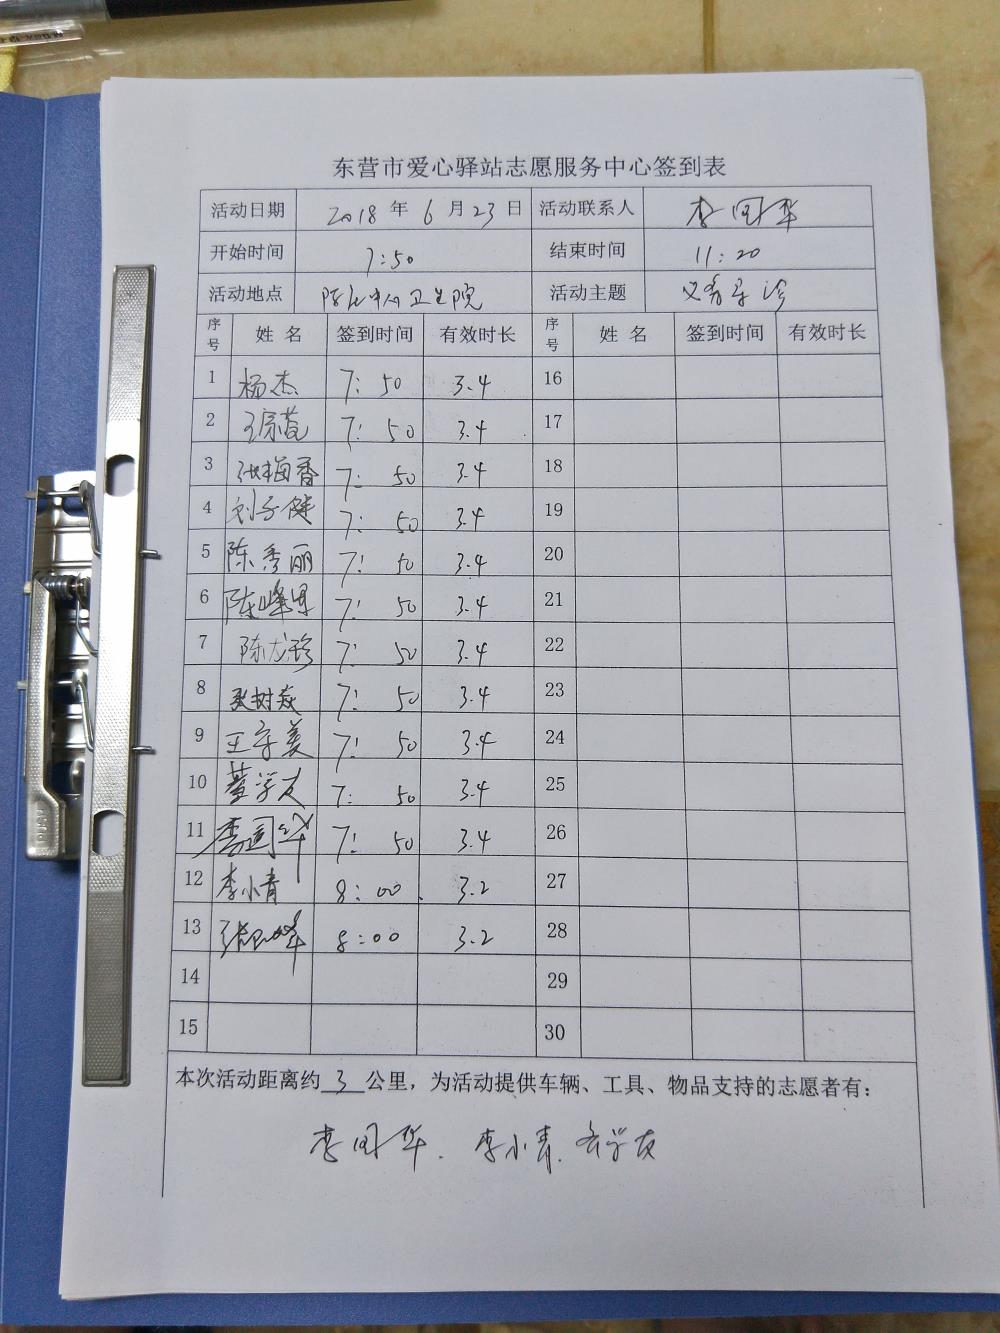 东营市爱心驿站志愿服务中心签到表
活动日期 2018 年 6 月 23 日 活动联系人 李国华
开始时间 7:50 结束时间 11:20
活动地点 卫生院 活动主题 义务
序号 姓名 签到时间 有效时长 序号 姓名 签到时间 有效时长
1 杨杰 7:50 3.4 16
2 7:50 3.4 17
3 张梅香 7:50 3.4 18
4 刘子健 7:50 3.4 19
5 陈秀丽 7:50 3.4 20
6 陈峰 7:50 3.4 21
7 陈龙 7:50 3.4 22
8 7:50 3.4 23
9 王守美 7:50 3.4 24
10 董学友 7:50 3.4 25
11 李国华 7:50 3.4 26
12 李小青 8:00 3.2 27
13 8:00 3.2 28
14 29
15 30
本次活动距离约 3 公里，为活动提供车辆、工具、物品支持的志愿者有：
李国华. 李小青. 学友